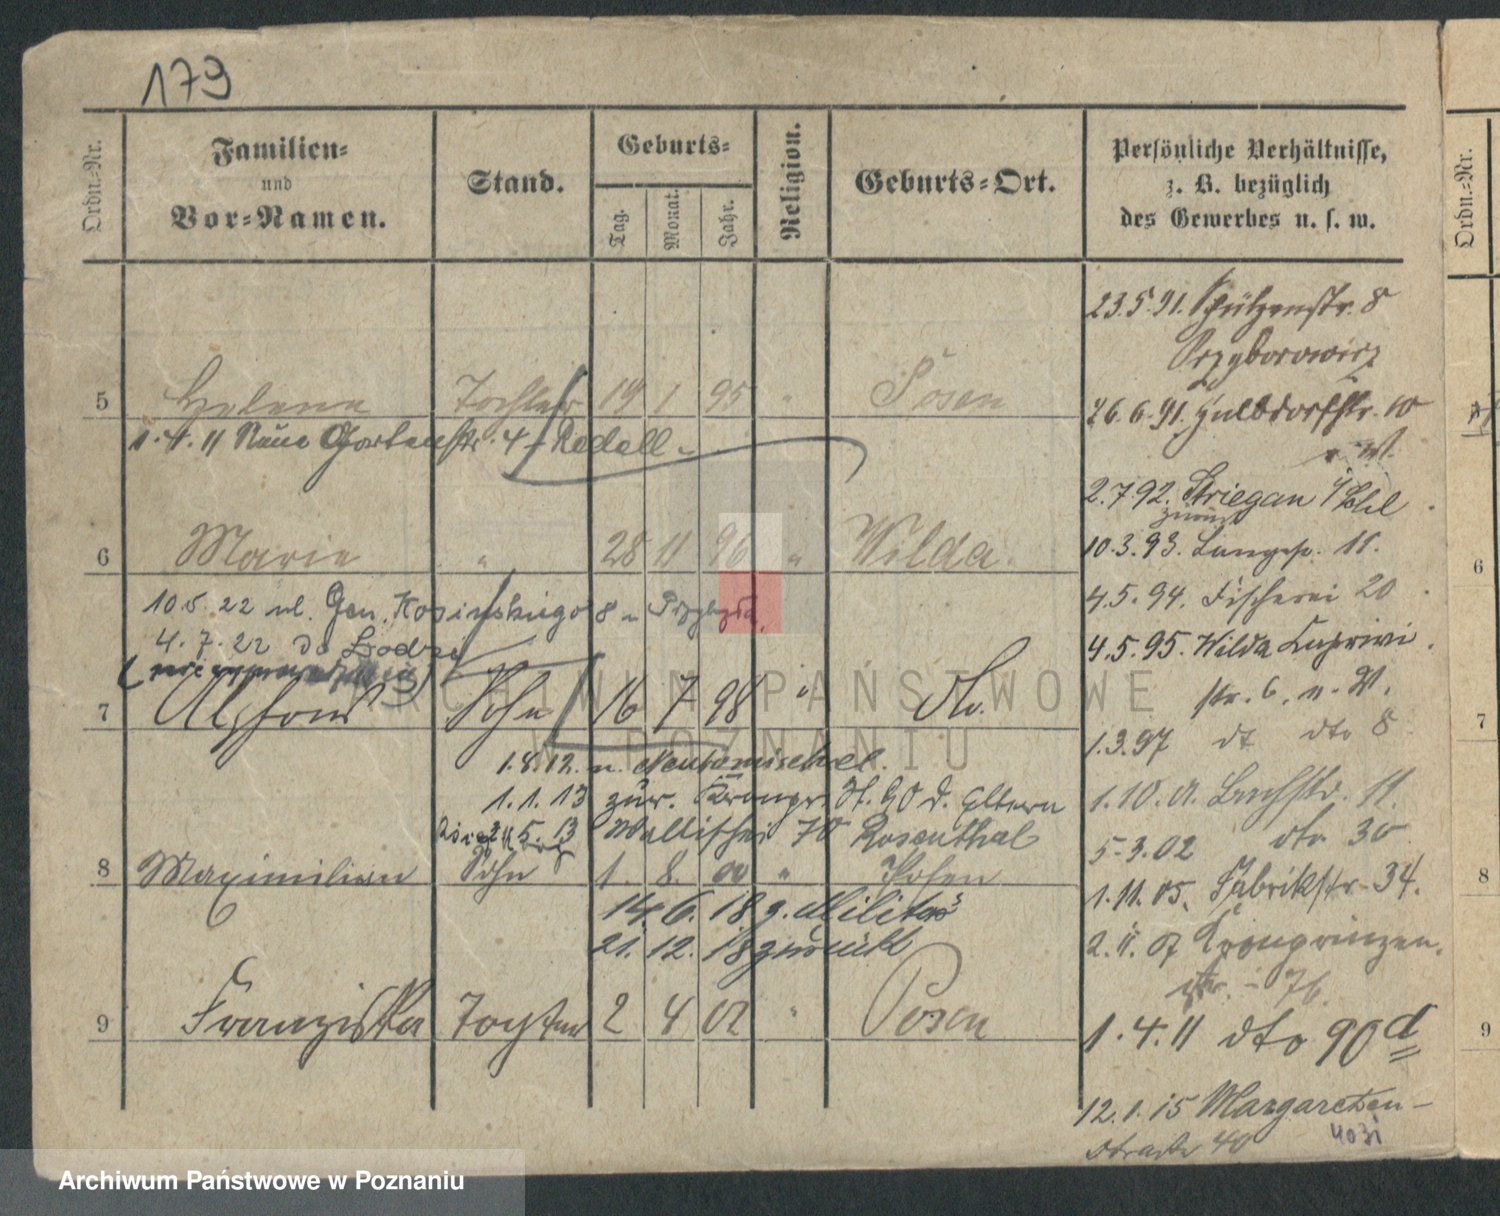 179
Ordn.-Nr.
Familien-
und
Vor-Namen.
Stand.
Geburts-
Tag.
Monat.
Jahr.
Religion.
Geburts-Ort.
Persönliche Verhältnisse,
z. B. bezüglich
des Gewerbes u. s. w.
5 Helene Tochter 19 1 95 " Posen
1.4.11 Neue Gartenstr. 4 - Redell -
6 Marie " 28 11 96 " Wilda.
10.5.22 ul. Gen. Kosinskiego 8 n
4.7.22 do Łodzi
7 Alphons Sohn 16 7 98 " do.
1.8.12. n. Neutomischel.
1.1.13 zur. Kronpr. St. 90 d. Eltern
5.13 Wallischei 70 Rosenthal
8 Maximilian Sohn 1. 8. 00 " Posen
14.6.18 z. Militär
21.12.18 zurückt
9 Franziska Tochter 2 4 02 " Posen
23.5.91. Schützenstr. 8
Przyborowicz
26.6.91. Halbdorfstr. 10
n. W.
2.7.92. Striegau
zurück
10.3.93. Langestr. 11.
4.5.94. Fischerei 20
4.5.95. Wilda Caprivi
str. 6. n. W.
1.3.97 dt dto 8
1.10.01. Bachstr. 11.
5.3.02 dto 30
1.11.05. Fabrikstr. 34.
2.11.07 Kronprinzen.
str. - 76.
1.4.11 dto 90 d
12.1.15 Margareten-
straße 40
4031
Ordn.-Nr.
6
7
8
9
ARCHIWUM PAŃSTWOWE
W POZNANIU
Archiwum Państwowe w Poznaniu